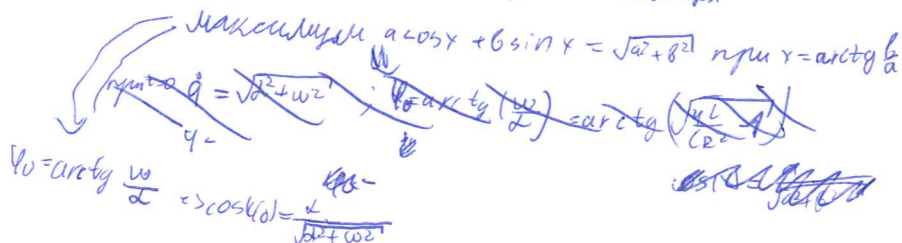 максимум a cos x + b sin x = √(a² + b²) при x = arctg b/a
при t=0 q̇ = √(α² + ω²) ; φ₀ = arctg (ω/α) = arctg (√(4L/(CR²) - 1))
φ₀ = arctg ω/α => cos φ₀ = α/√(α² + ω²)